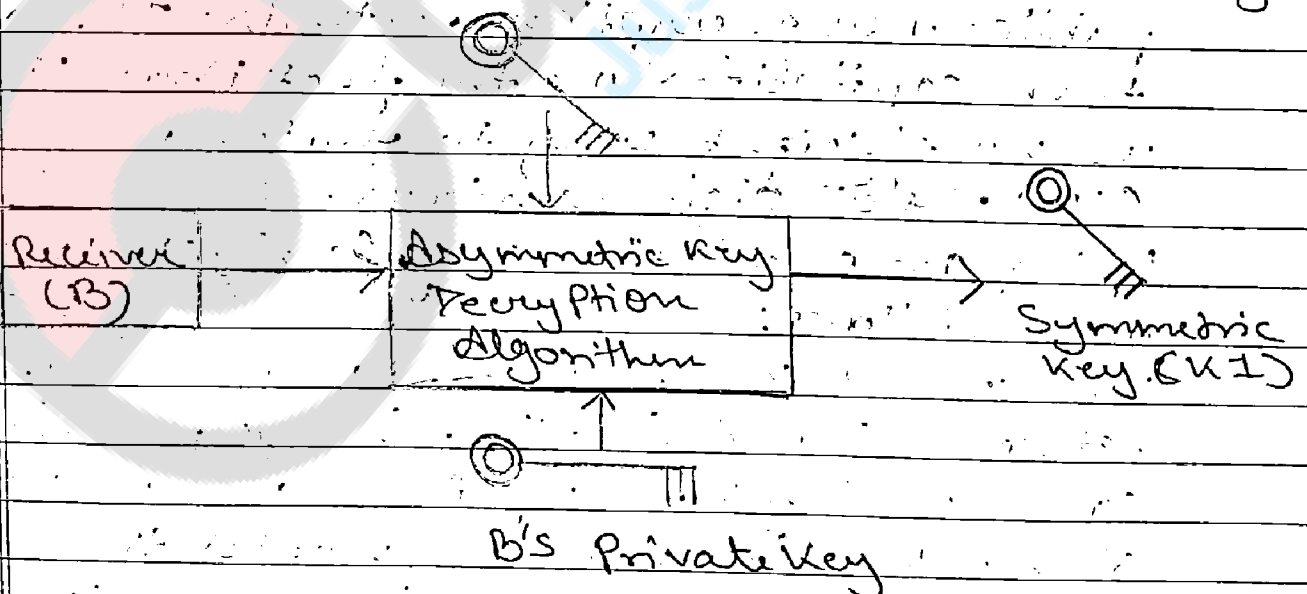 Receiver
(B)
Asymmetric Key
Decryption
Algorithm
Symmetric
Key (K1)
B's Private Key